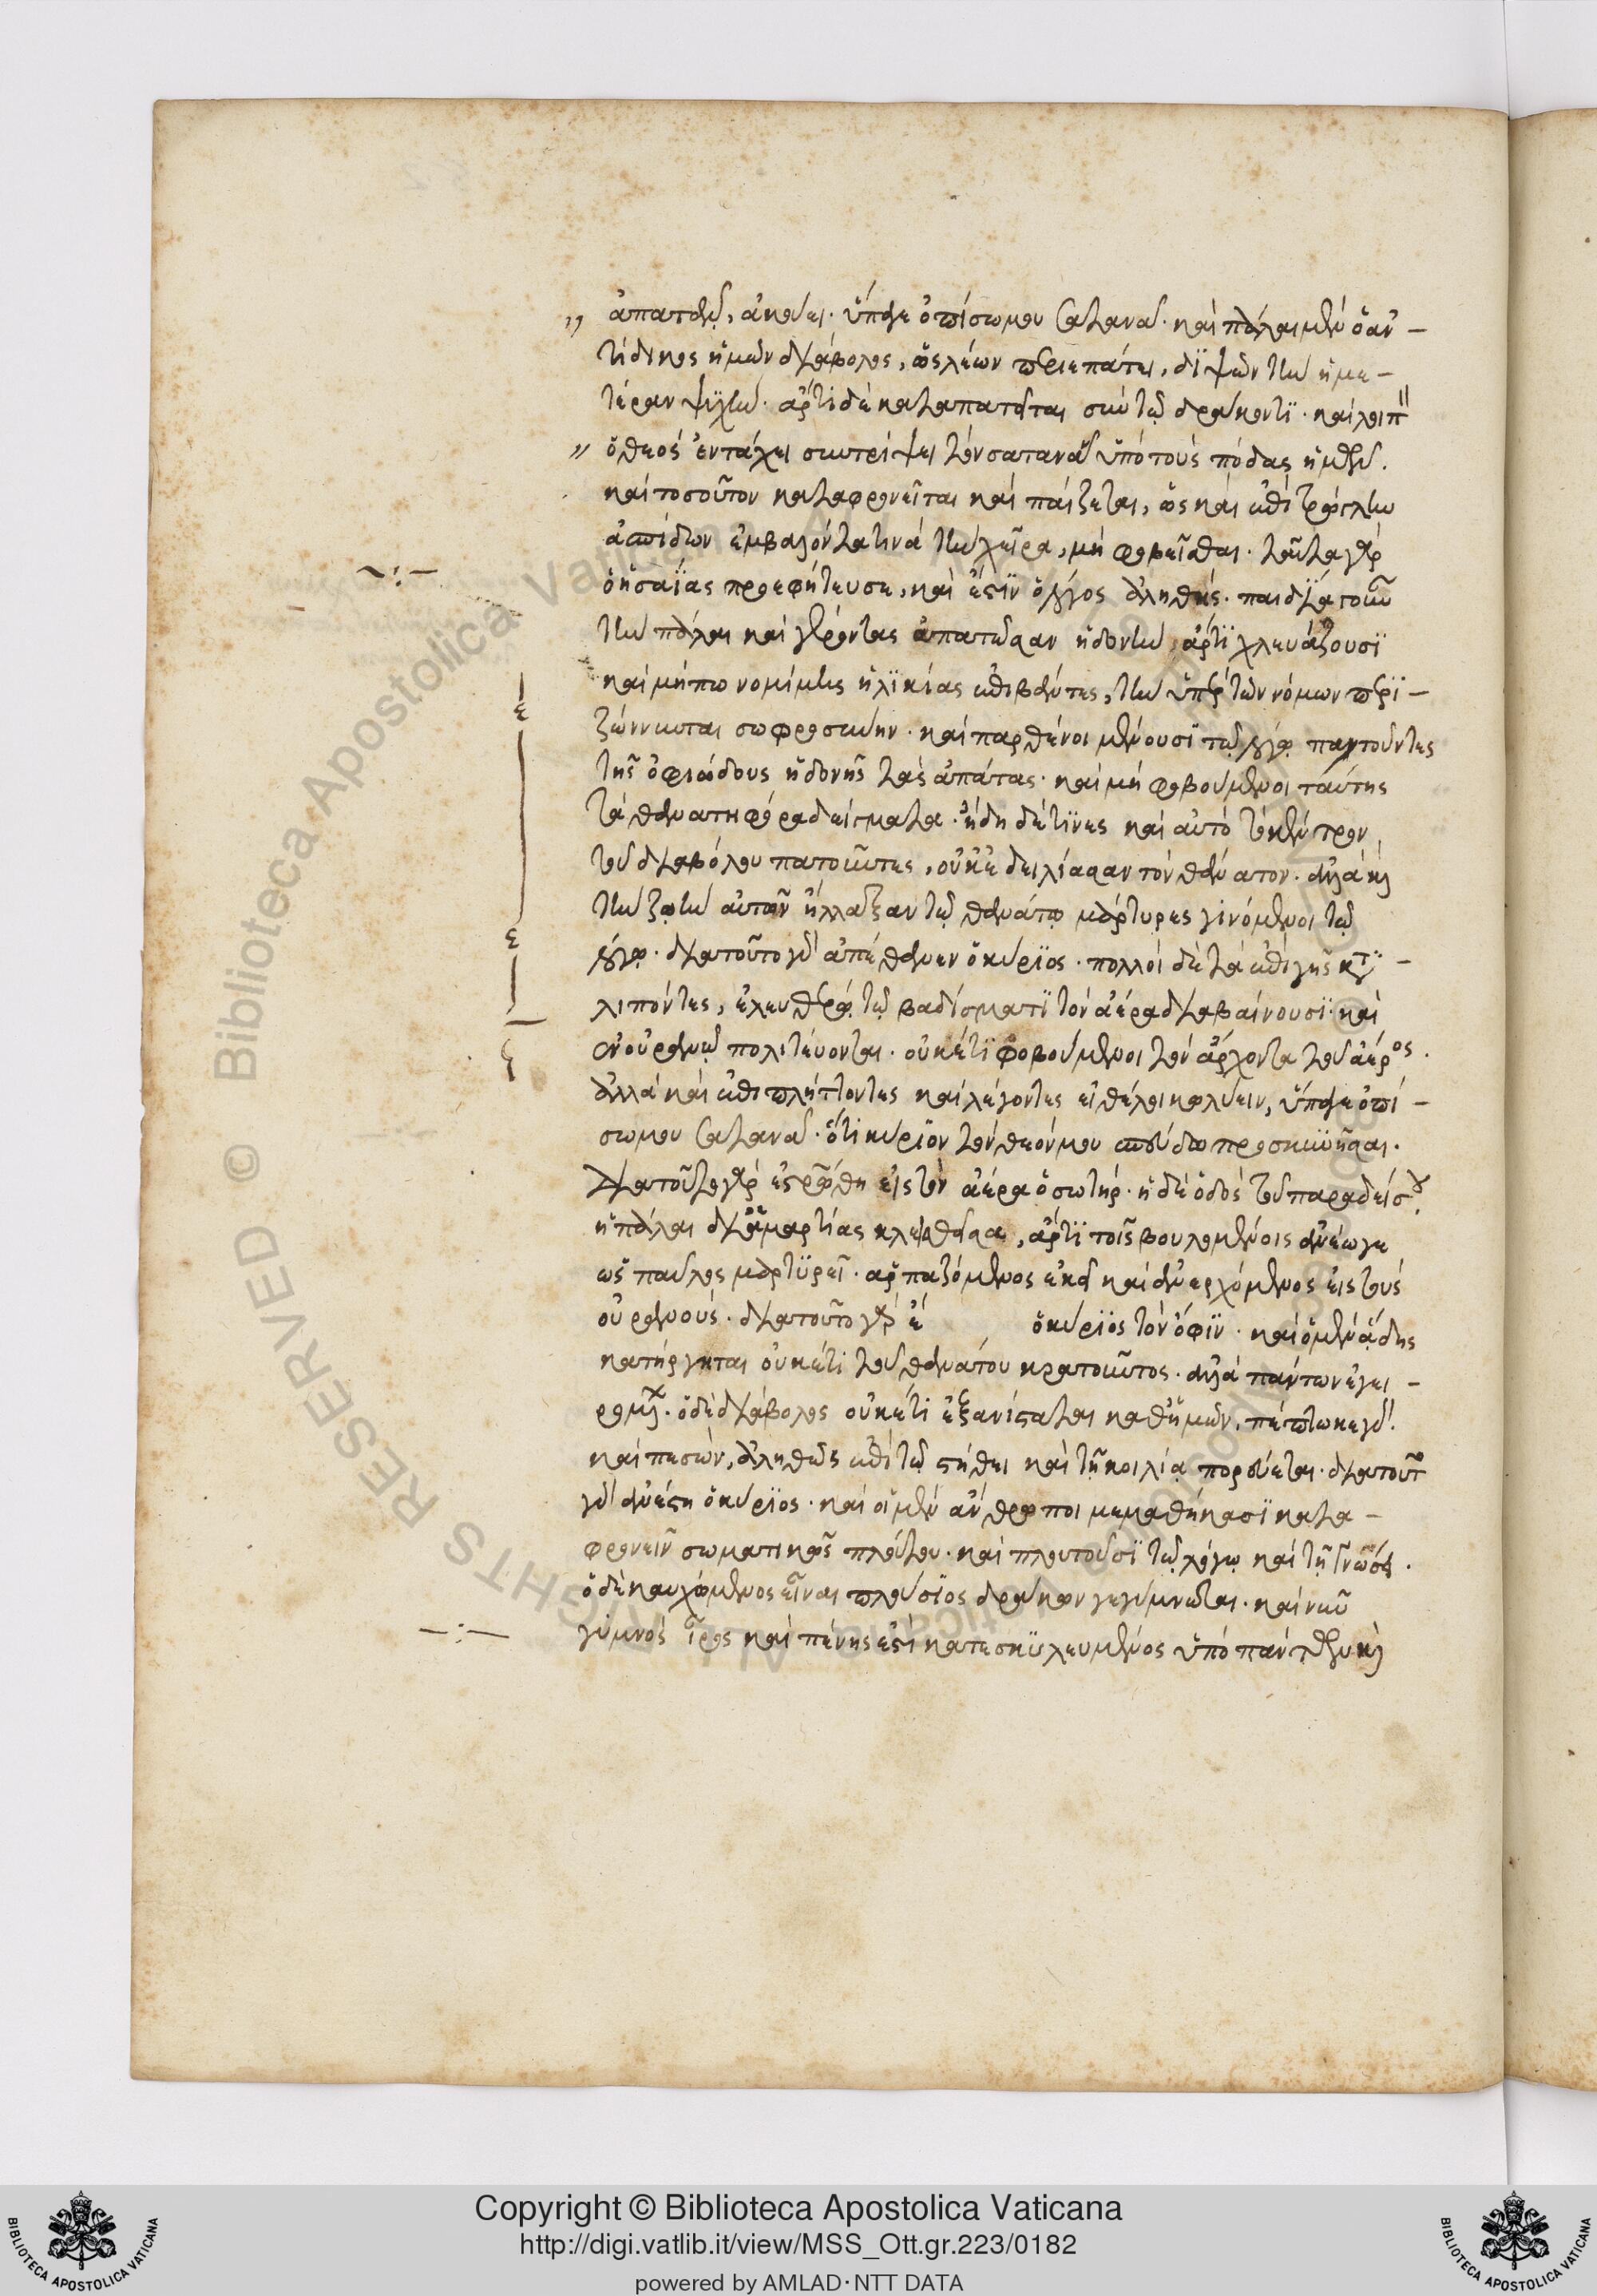 ἀπατᾶν, ἀκούει. ὕπαγε ὀπίσω μου Σατανᾶ. καὶ πάλαι μὲν ὁ ἀν-
τίδικος ἡμῶν διάβολος, ὡς λέων περιεπάτει, διψῶν τὴν ἡμε-
τέραν ψυχήν. ἄρτι δὲ καταπατεῖται σὺν τῷ δράκοντι. καὶ
ὁ θεὸς ἐν τάχει συντρίψει τὸν σατανᾶν ὑπὸ τοὺς πόδας ἡμῶν.
καὶ τοσοῦτον καταφρονεῖται καὶ παίζεται, ὡς καὶ ἐπὶ τρώγλην
ἀσπίδων ἐμβαλόντα τινὰ τὴν χεῖρα, μὴ φοβεῖσθαι. ταῦτα γὰρ
ὁ ἡσαΐας προεφήτευσε, καὶ ἔστιν ὁ λόγος ἀληθής. παιδία τοίνυν
τὴν πάλαι καὶ γέροντας ἀπατῶσαν ἡδονὴν ἄρτι χλευάζουσι
καὶ μήπω νομίμης ἡλικίας ἐπιβάντες, τὴν ὑπὲρ τῶν νόμων περι-
ζώννυνται σωφροσύνην. καὶ παρθένοι μένουσι τῷ λόγῳ πατοῦντες
τῆς ὀφιώδους ἡδονῆς τὰς ἀπάτας. καὶ μὴ φοβούμενοι ταύτης
τὰ θανατηφόρα δείγματα. ἤδη δέ τινες καὶ αὐτὸ τὸ κέντρον
τοῦ διαβόλου πατοῦντες, οὐκ ἐδειλίασαν τὸν θάνατον. ἀλλὰ καὶ
τὴν ζωὴν αὐτῶν ἤλλαξαν τῷ θανάτῳ μάρτυρες γινόμενοι τῷ
λόγῳ. διὰ τοῦτο γὰρ ἀπέθανεν ὁ κύριος. πολλοὶ δὲ τὰ ἐπὶ γῆς κατα-
λιπόντες, ἐλευθέρῳ τῷ βαδίσματι τὸν ἀέρα διαβαίνουσι. καὶ
ἐν οὐρανῷ πολιτεύονται. οὐκέτι φοβούμενοι τὸν ἄρχοντα τοῦ ἀέρος.
ἀλλὰ καὶ ἐπιπλήττοντες καὶ λέγοντες εἰ θέλοι κωλύειν, ὕπαγε ὀπί-
σω μου Σατανᾶ. ὅτι κύριον τὸν θεόν μου σπεύδω προσκυνῆσαι.
Διὰ τοῦτο γὰρ ἐστρώθη εἰς τὸν ἀέρα ὁ σωτήρ. ἡ δὲ ὁδὸς τοῦ παραδείσου
ἡ πάλαι δι' ἁμαρτίας κλεισθεῖσα, ἄρτι τοῖς βουλομένοις ἀνέωγε
ὡς παῦλος μαρτυρεῖ. ἁρπαζόμενος ἐκεῖ καὶ ἀνερχόμενος εἰς τοὺς
οὐρανούς. διὰ τοῦτο γὰρ ἐ ὁ κύριος τὸν ὄφιν. καὶ ὁ μὲν ᾅδης
κατήργηται οὐκέτι τοῦ θανάτου κρατοῦντος. ἀλλὰ πάντων ἐγει-
ρομένων. ὁ δὲ διάβολος οὐκέτι ἐξανίσταται καθ' ἡμῶν, πέπτωκε γάρ.
καὶ πεσὼν, ἀληθῶς ἐπὶ τῷ στήθει καὶ τῇ κοιλίᾳ πορεύεται. διὰ τοῦτο
γὰρ ἀνέστη ὁ κύριος. καὶ οἱ μὲν ἄνθρωποι μεμαθήκασι κατα-
φρονεῖν σωματικοῦ πλούτου. καὶ πλουτοῦσι τῷ λόγῳ καὶ τῇ γνώσει.
ὁ δὲ καυχώμενος εἶναι πλούσιος δράκων γεγύμνωται. καὶ νῦν
γυμνὸς ἶρος καὶ πένης ἐστὶ κατεσκυλευμένος ὑπὸ πάντων καὶ
Copyright © Biblioteca Apostolica Vaticana
http://digi.vatlib.it/view/MSS_Ott.gr.223/0182
powered by AMLAD·NTT DATA
BIBLIOTECA APOSTOLICA VATICANA
BIBLIOTECA APOSTOLICA VATICANA